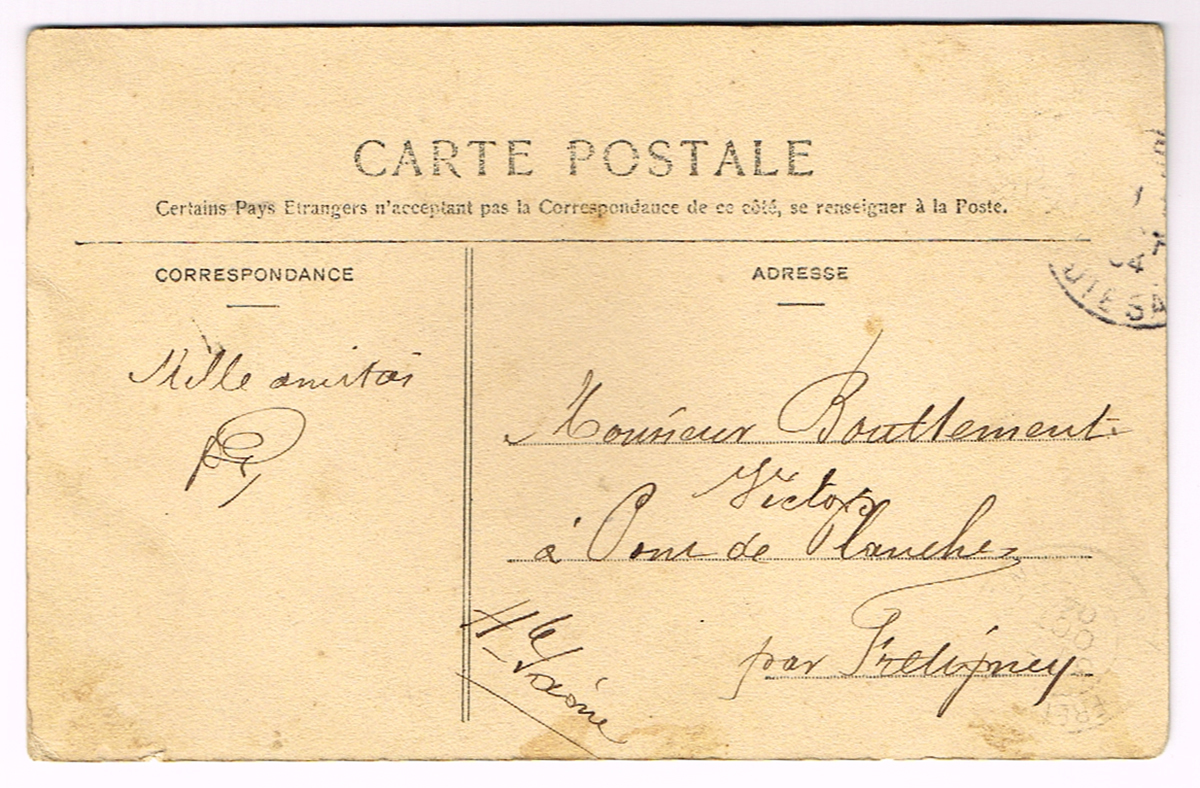 CARTE POSTALE
Certains Pays Etrangers n'acceptant pas la Correspondance de ce côté, se renseigner à la Poste.
CORRESPONDANCE
ADRESSE
Mille amitiés
Monsieur Bouttement
Victor
à Pont de Planches
par Fretigney
Hte Saône
04
UTE SA